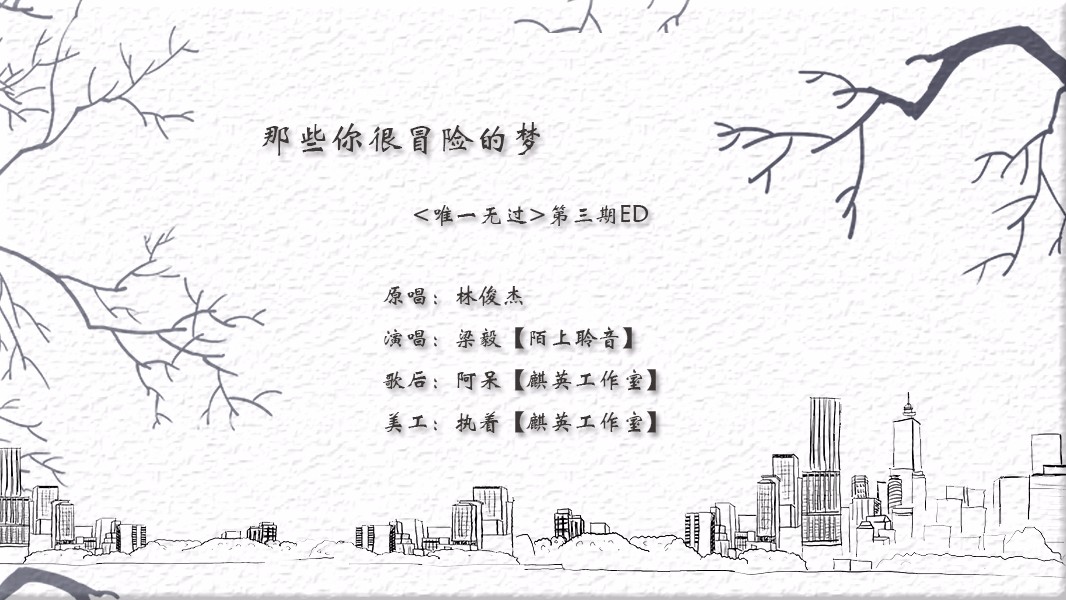 那些你很冒险的梦
<唯一无过>第三期ED
原唱：林俊杰
演唱：梁毅【陌上聆音】
歌后：阿呆【麒英工作室】
美工：执着【麒英工作室】